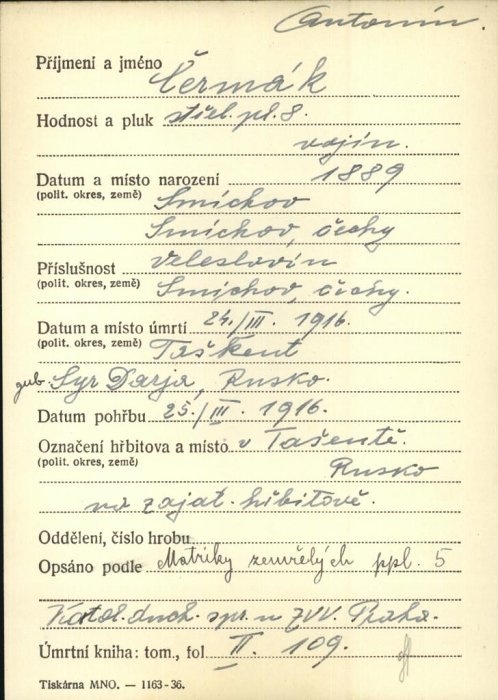 Antonín.
Příjmení a jméno Čermák
Hodnost a pluk střel. pl. 8.
vojín.
Datum a místo narození 1889
(polit. okres, země) Smíchov
Smíchov, Čechy
Příslušnost Veleslavín
(polit. okres, země) Smíchov, Čechy.
Datum a místo úmrtí 24./III. 1916.
(polit. okres, země) Taškent
gub. Syr Darja, Rusko.
Datum pohřbu 25./III. 1916.
Označení hřbitova a místo v Tašentě.
(polit. okres, země) Rusko
na zajat. hřbitově.
Oddělení, číslo hrobu
Opsáno podle Matriky zemřelých ppl. 5
Katol. duch. spr. u ZVV. Praha.
Úmrtní kniha: tom., fol II. 109.
Tiskárna MNO. — 1163-36.